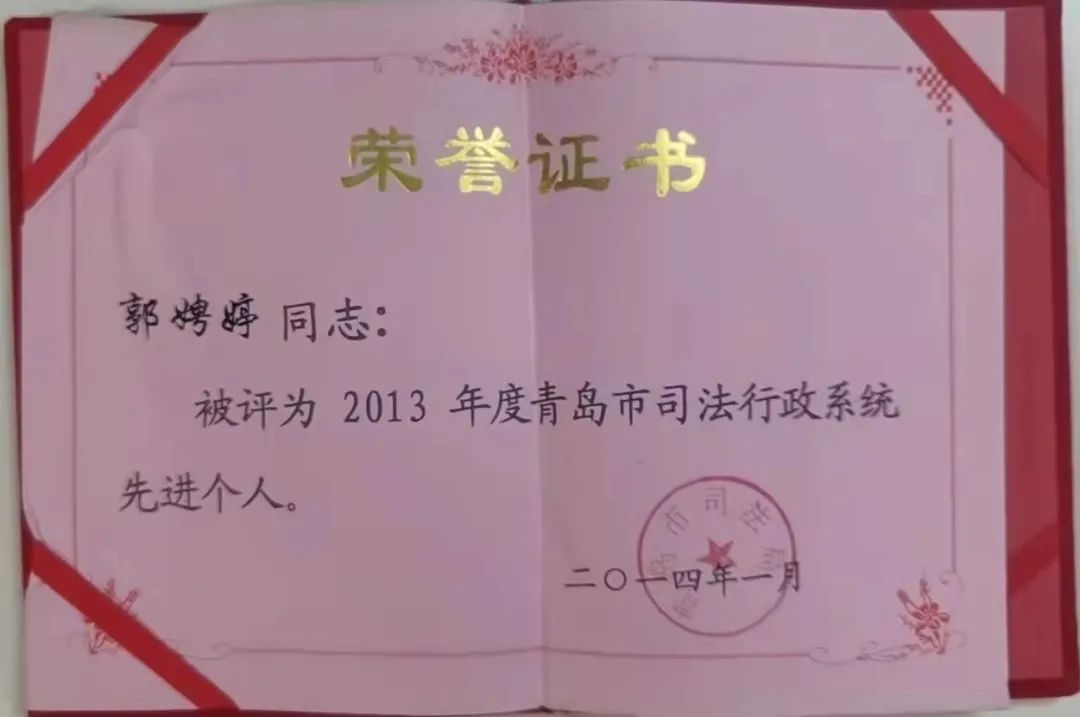 荣誉证书
郭娉婷 同志：
被评为 2013 年度青岛市司法行政系统
先进个人。
青岛市司法局
二〇一四年一月